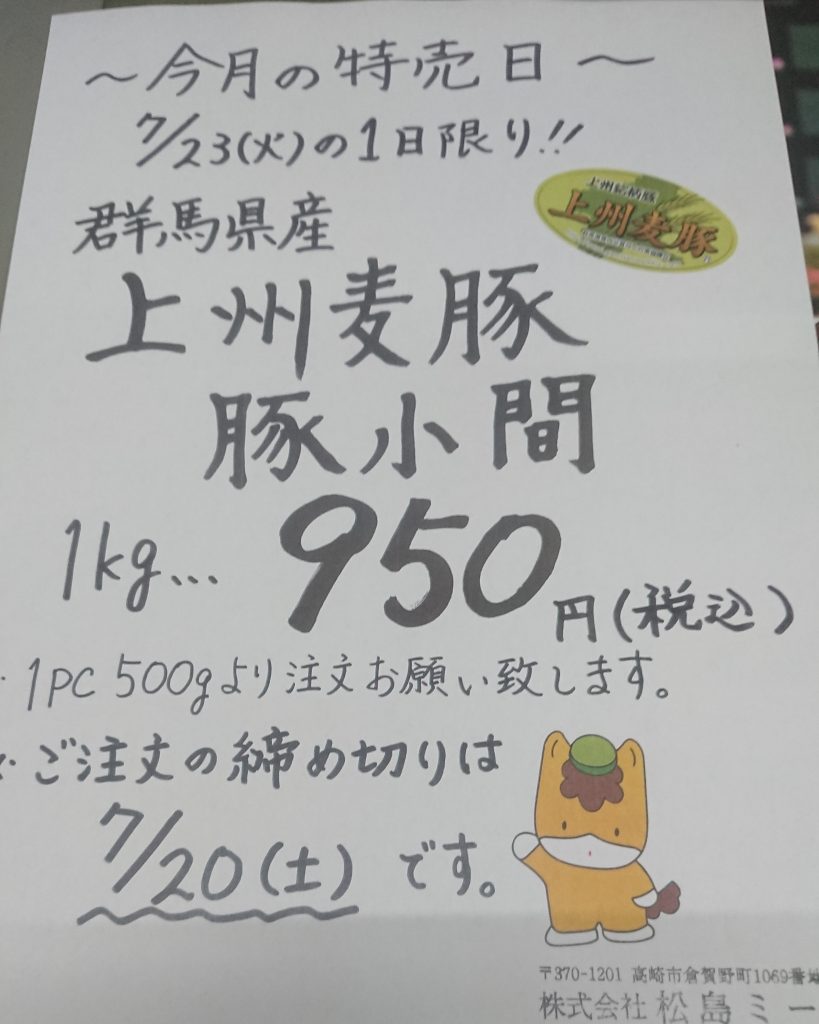 ～今月の特売日～
7/23(火)の1日限り!!
群馬県産
上州銘柄豚
上州麦豚
上州麦豚
豚小間
1kg… 950円(税込)
・1PC 500gより注文お願い致します。
ご注文の締め切りは
7/20(土)です。
〒370-1201 高崎市倉賀野町1069番地
株式会社 松島ミー